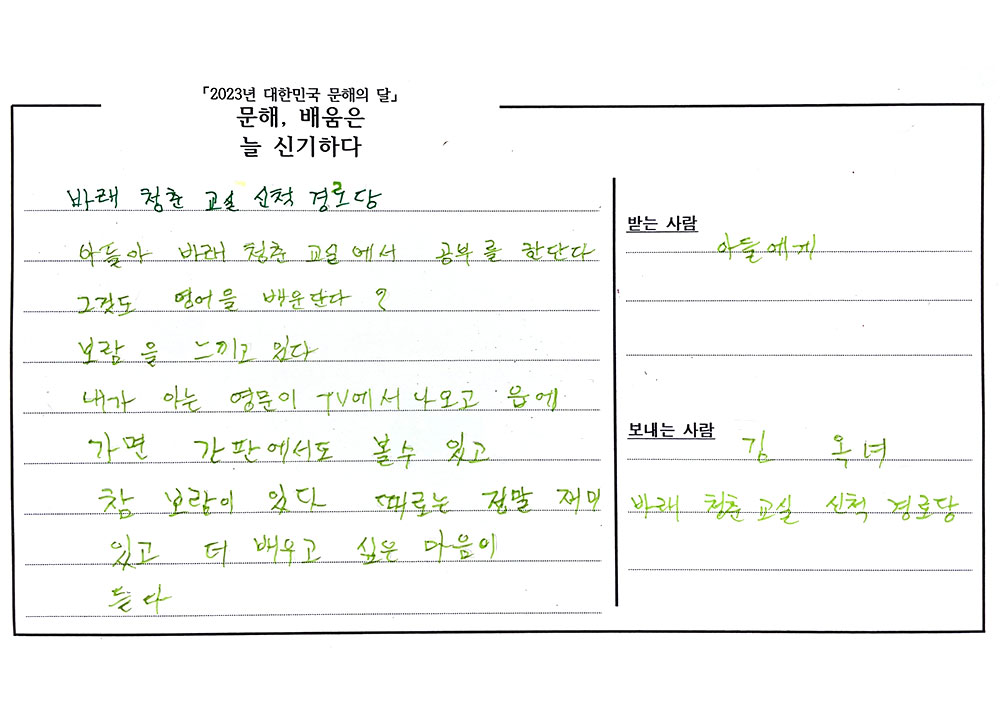 「2023년 대한민국 문해의 달」
문해, 배움은
늘 신기하다
바래 청춘 교실 신척 경로당
아들아 바래 청춘 교실에서 공부를 한단다
그것도 영어을 배운단다 ?
보람을 느끼고 있다
내가 아는 영문이 TV에서 나오고 음에
가면 간판에서도 볼수 있고
참 보람이 있다 때로는 정말 재미
있고 더 배우고 싶은 마음이
든다
받는 사람
아들에게
보내는 사람
김 옥녀
바래 청춘교실 신척 경로당